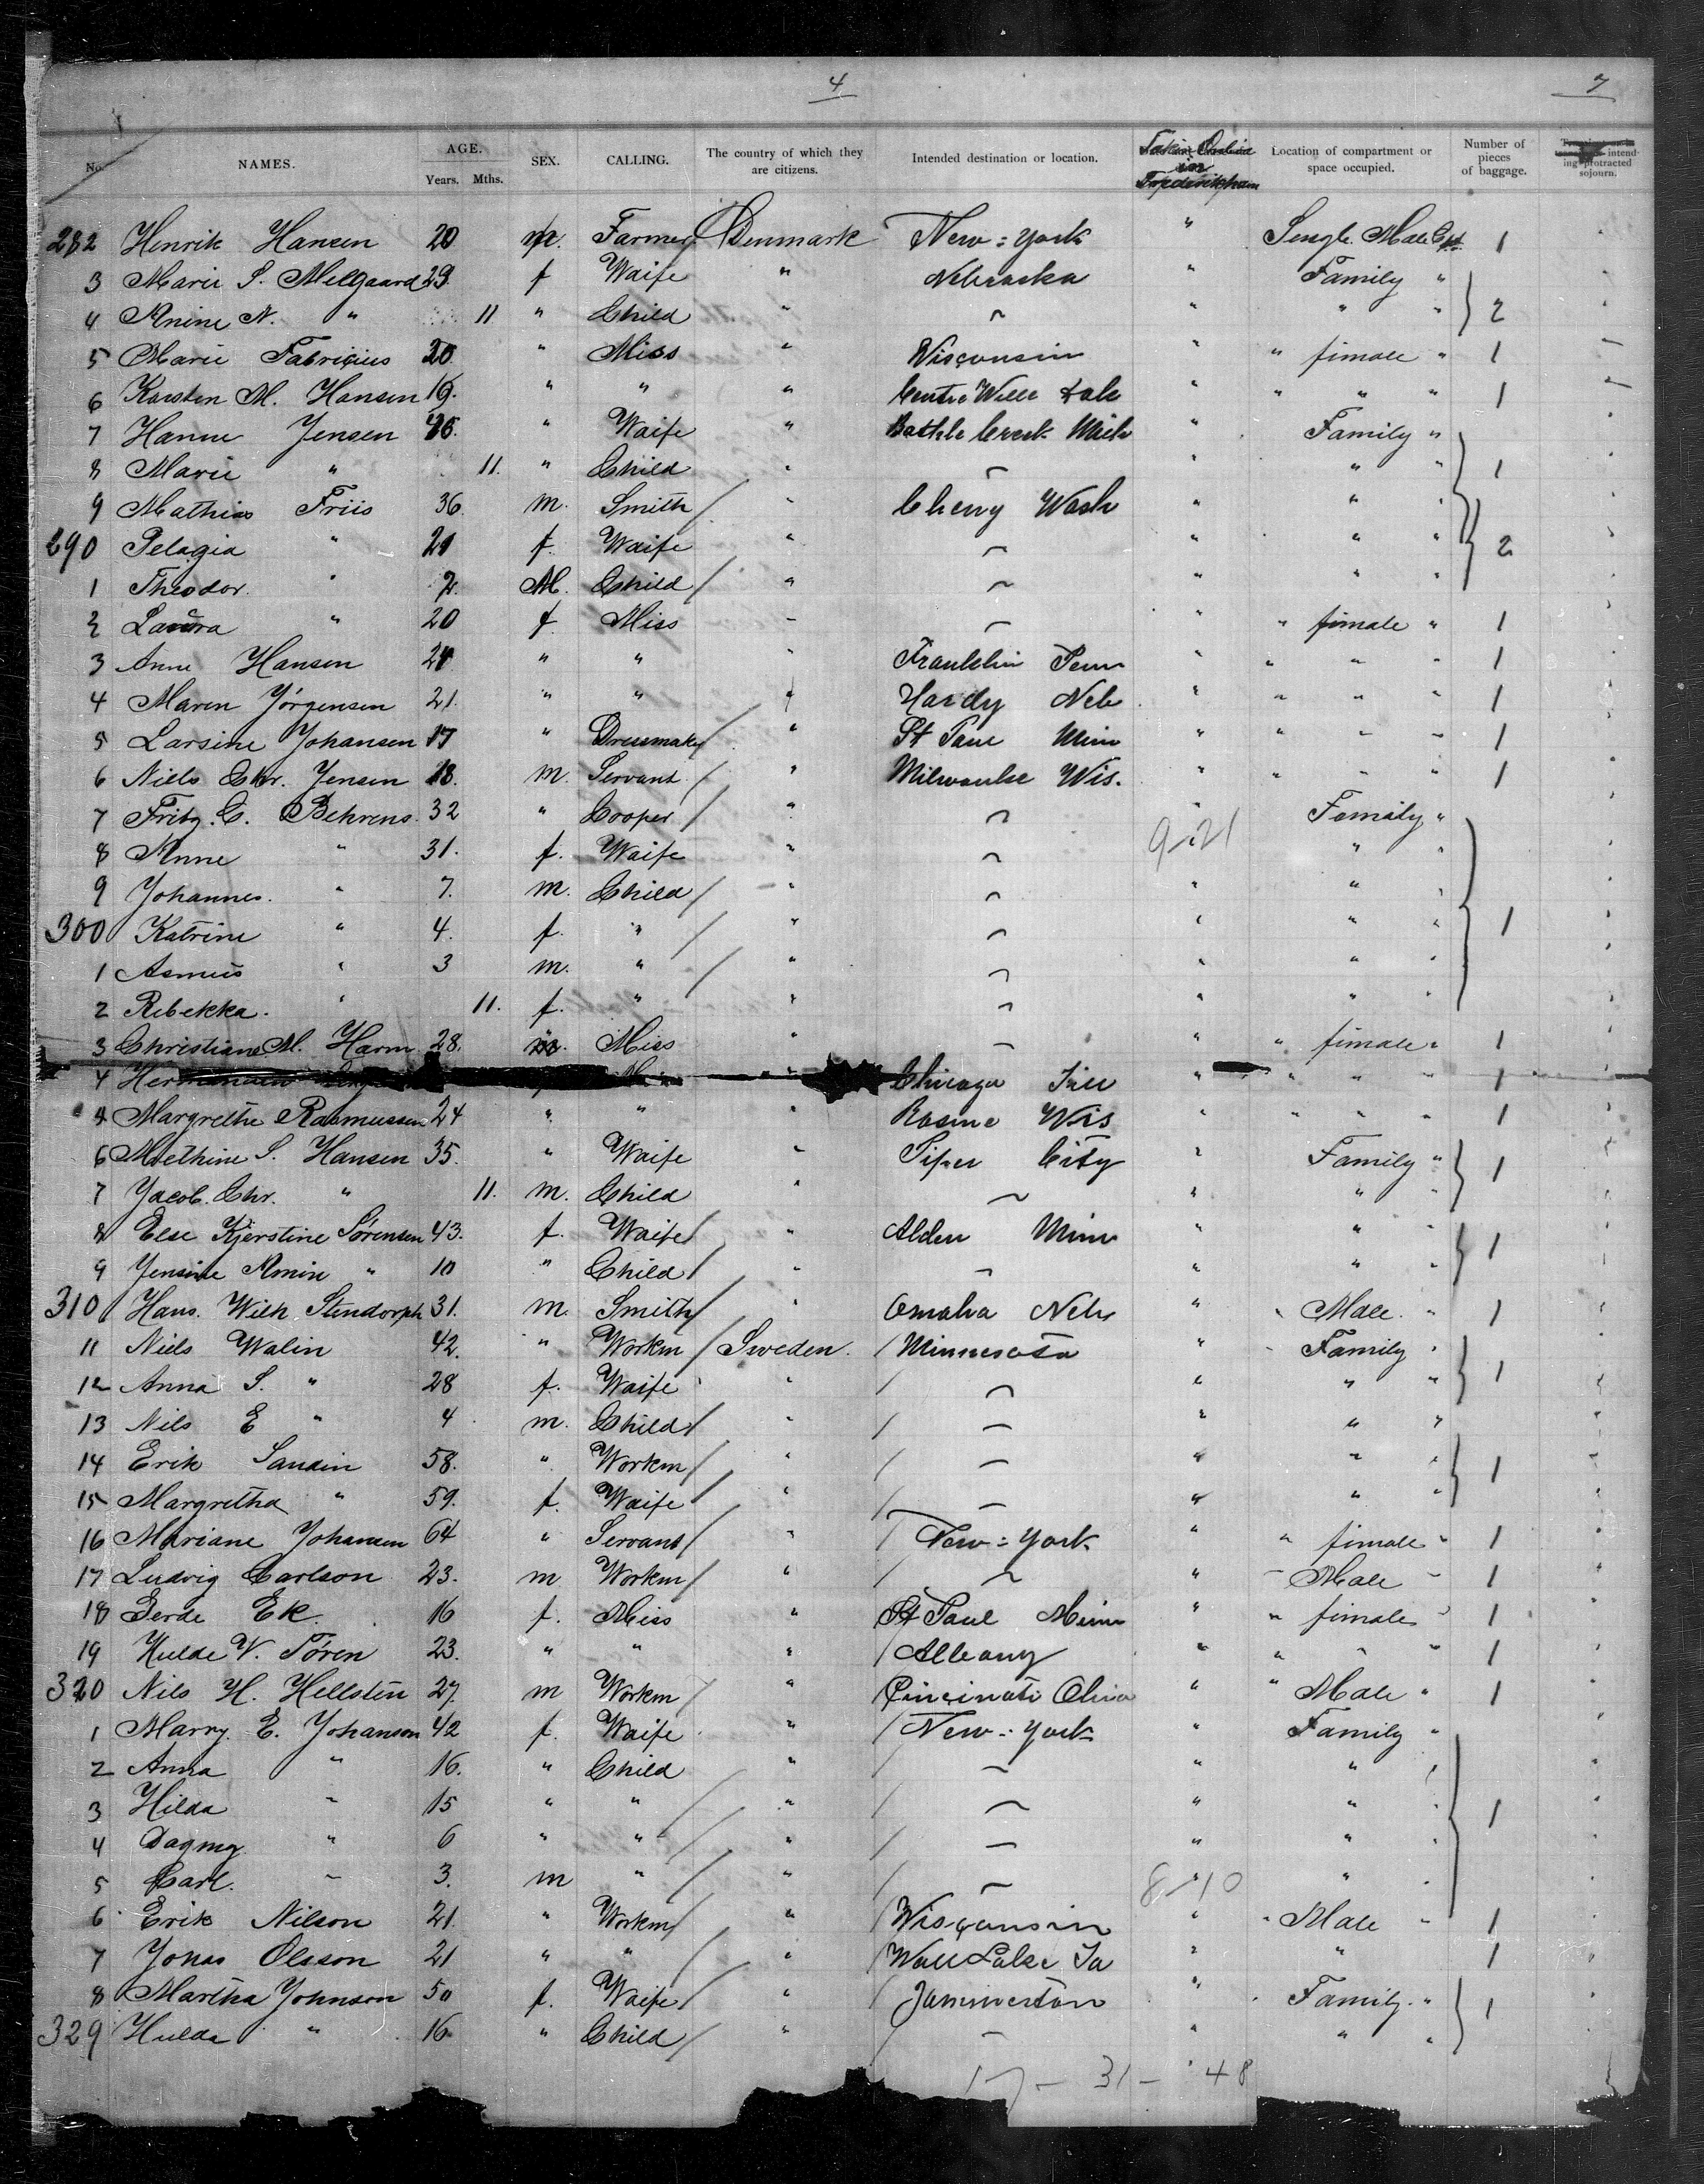 4 7
No. NAMES. AGE. Years. Mths. SEX. CALLING. The country of which they are citizens. Intended destination or location. Location of compartment or space occupied. Number of pieces of baggage.
282 Henrik Hansen 20 m. Farmer Denmark New=York " Single Male Cpt. 1
3 Marie S. Melgaard 29. f Waife " Nebraska " Family "
4 Anine N. " 11 " Child " " " " 2
5 Marie Fabricius 20. " Miss " Wisconsin " " fimale " 1
6 Karsten M. Hansen 19. " " " Centre Wille " " " " 1
7 Hanne Jensen " Waife " Battle Creek Mich " Family "
8 Marie " 11. " Child " " " 1
9 Mathias Friis 36. m. Smith " Cheny Wash " " "
290 Pelagia " 21 f. Waife " " " " 2
1 Theodor. " 2. M. Child " " " "
2 Laura " 20 f. Miss " " " fimale " 1
3 Anne Hansen " " " Franklin Penn " " " " 1
4 Maren Jörgensen 21. " " " Hardy Neb " " " " 1
5 Larsine Johansen 17 " Dressmaker " St Paul Minn " " " " 1
6 Niels Chr. Jensen 18. m. Servant " Milwauke Wis. " " " " 1
7 Fritz. C. Behrens. 32 " Cooper " " Family "
8 Anne " 31. f. Waife " 9-21 " "
9 Johannes. " 7. m. Child " " " "
300 Katrine " 4. f. " " " " " 1
1 Asmus " 3 m. " " " " "
2 Rebekka. " 11. f. " " " " "
3 Christiane M. Harm 28. Miss " " " fimale " 1
4 Chicago Ill " " " " 1
Margrethe Rasmussen 24 " " " Rasine Wis " " " " 1
6 Methine S. Hansen 35. " Waife " Piper City " Family " 1
7 Jacob. Chr. " 11. m. Child " " " "
8 Else Kjerstine Sörensen 43. f. Waife " Alden Minn " " " 1
9 Jensine Amin " 10 " Child " " " "
310 Hans. Wilh Stendorph 31. m. Smith " Omaha Neb " " Male. " 1
11 Niels Walin 42. " Workm Sweden. Minnesota " Family " 1
12 Anna S. " 28 f. Waife " " " "
13 Nils E " 4 m. Child " " " "
14 Erik Sandin 58. " Workm " " " " 1
15 Margretha " 59. f. Waife " " " "
16 Mariane Johansen 64 " Servant " New=York " " fimale " 1
17 Ludvig Carlson 23. m Workm " " Male " 1
18 Gerde Ek. 16 f. Miss " St Paul Minn " " fimale " 1
19 Hulde V. Tören 23. " " " Albany " " " " 1
320 Nils H. Hellsten 27. m Workm " Cincinati Ohio " " Male " 1
1 Marry. E. Johanson 42 f. Waife " New=York " Family "
2 Anna " 16. " Child " " " "
3 Hilda " 15 " " " " " " 1
4 Dagmg " 6 " " " " " "
5 Carl. " 3. m " " 8-10 " "
6 Erik Nilson 21. " Workm " Wisconsin " " Male " 1
7 Jonas Olsson 21 " " " Wall Lake Ia " " 1
8 Martha Johnson 50 f. Waife " " Family. " 1
329 Hulda " 16 " Child " " " "
17 - 31 - 48